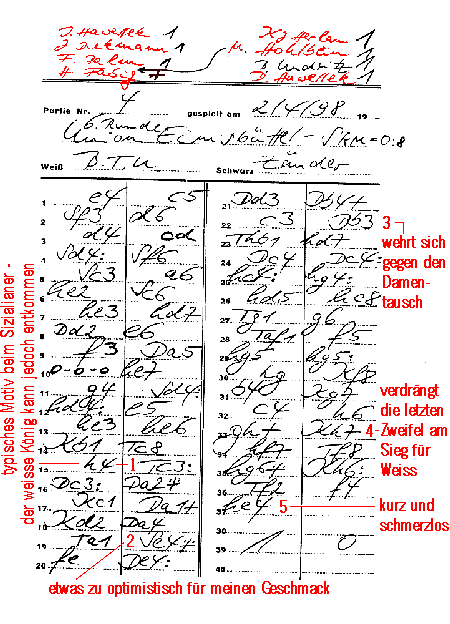 J. Haveneck 1
J. Dickmann 1
F. Palm 1
H. 1
1
M.
B. 1
D. Haveneck 1
Partie Nr. 4 gespielt am 2/4/98 19 -
6. Runde
Union Eimsbüttel - SKM = 0:8
Weiß B.T.U Schwarz Zünder
1 e4 c5
2 Sf3 d6
3 d4 cd
4 Sd4: Sf6
5 Sc3 a6
6 le2 Sc6
7 le3 ld7
8 Dd2 e6
9 f3 Da5
10 0-0-0 le7
11 g4 Sd4:
12 ld4: e5
13 le3 le6
14 Kb1 Tc8
15 h4 1 Tc3:
16 Dc3: Da2+
17 Kc1 Da1+
18 Kd2 Da4
19 Ta1 2 Se4+
20 fe De4:
21 Dd3 Db4+
22 c3 Db3
23 Thb1 ld7
24 Dc4 Dc4:
25 lc4: lg4:
26 ld5 lc8
27 Tg1 g6
28 Taf1 f5
29 lg5 lg5:
30 hg Kf8
31 b4 Kg7
32 c4 h6
33 gh+ Kh7
34 lf7 Tf8
35 lg6+ Kh6:
36 Tf2 f4
37 le4
38
39 1 0
40
typisches Motiv beim Sizilianer -
der weisse König kann jedoch entkommen
3
wehrt sich
gegen den
Damen-
tausch
verdrängt
die letzten
4- Zweifel am
Sieg für
Weiss
5
kurz und
schmerzlos
etwas zu optimistisch für meinen Geschmack